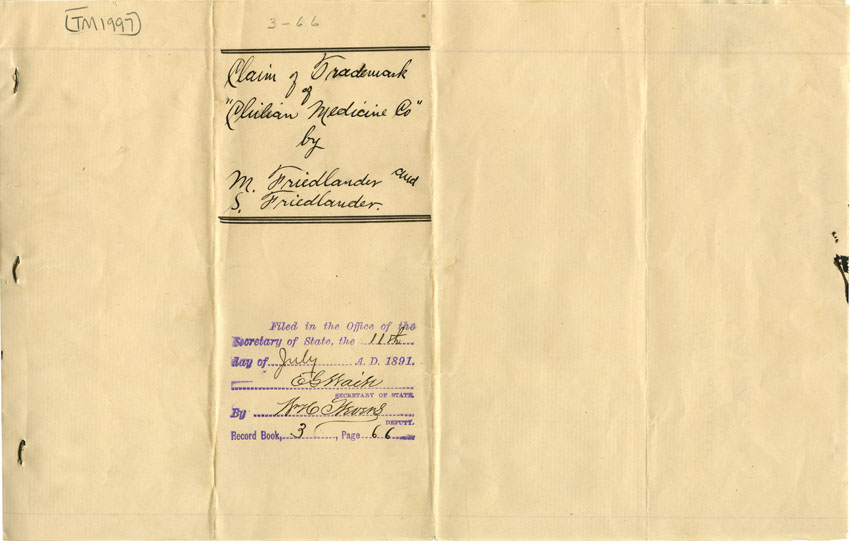 TM1997
3-66
Claim of Trademark
of
"Chilian Medicine Co"
by
M. Friedlander and
S. Friedlander.
Filed in the Office of the
Secretary of State, the 11th
day of July A. D. 1891.
E G Waite
SECRETARY OF STATE.
By
DEPUTY.
Record Book, 3, Page 66